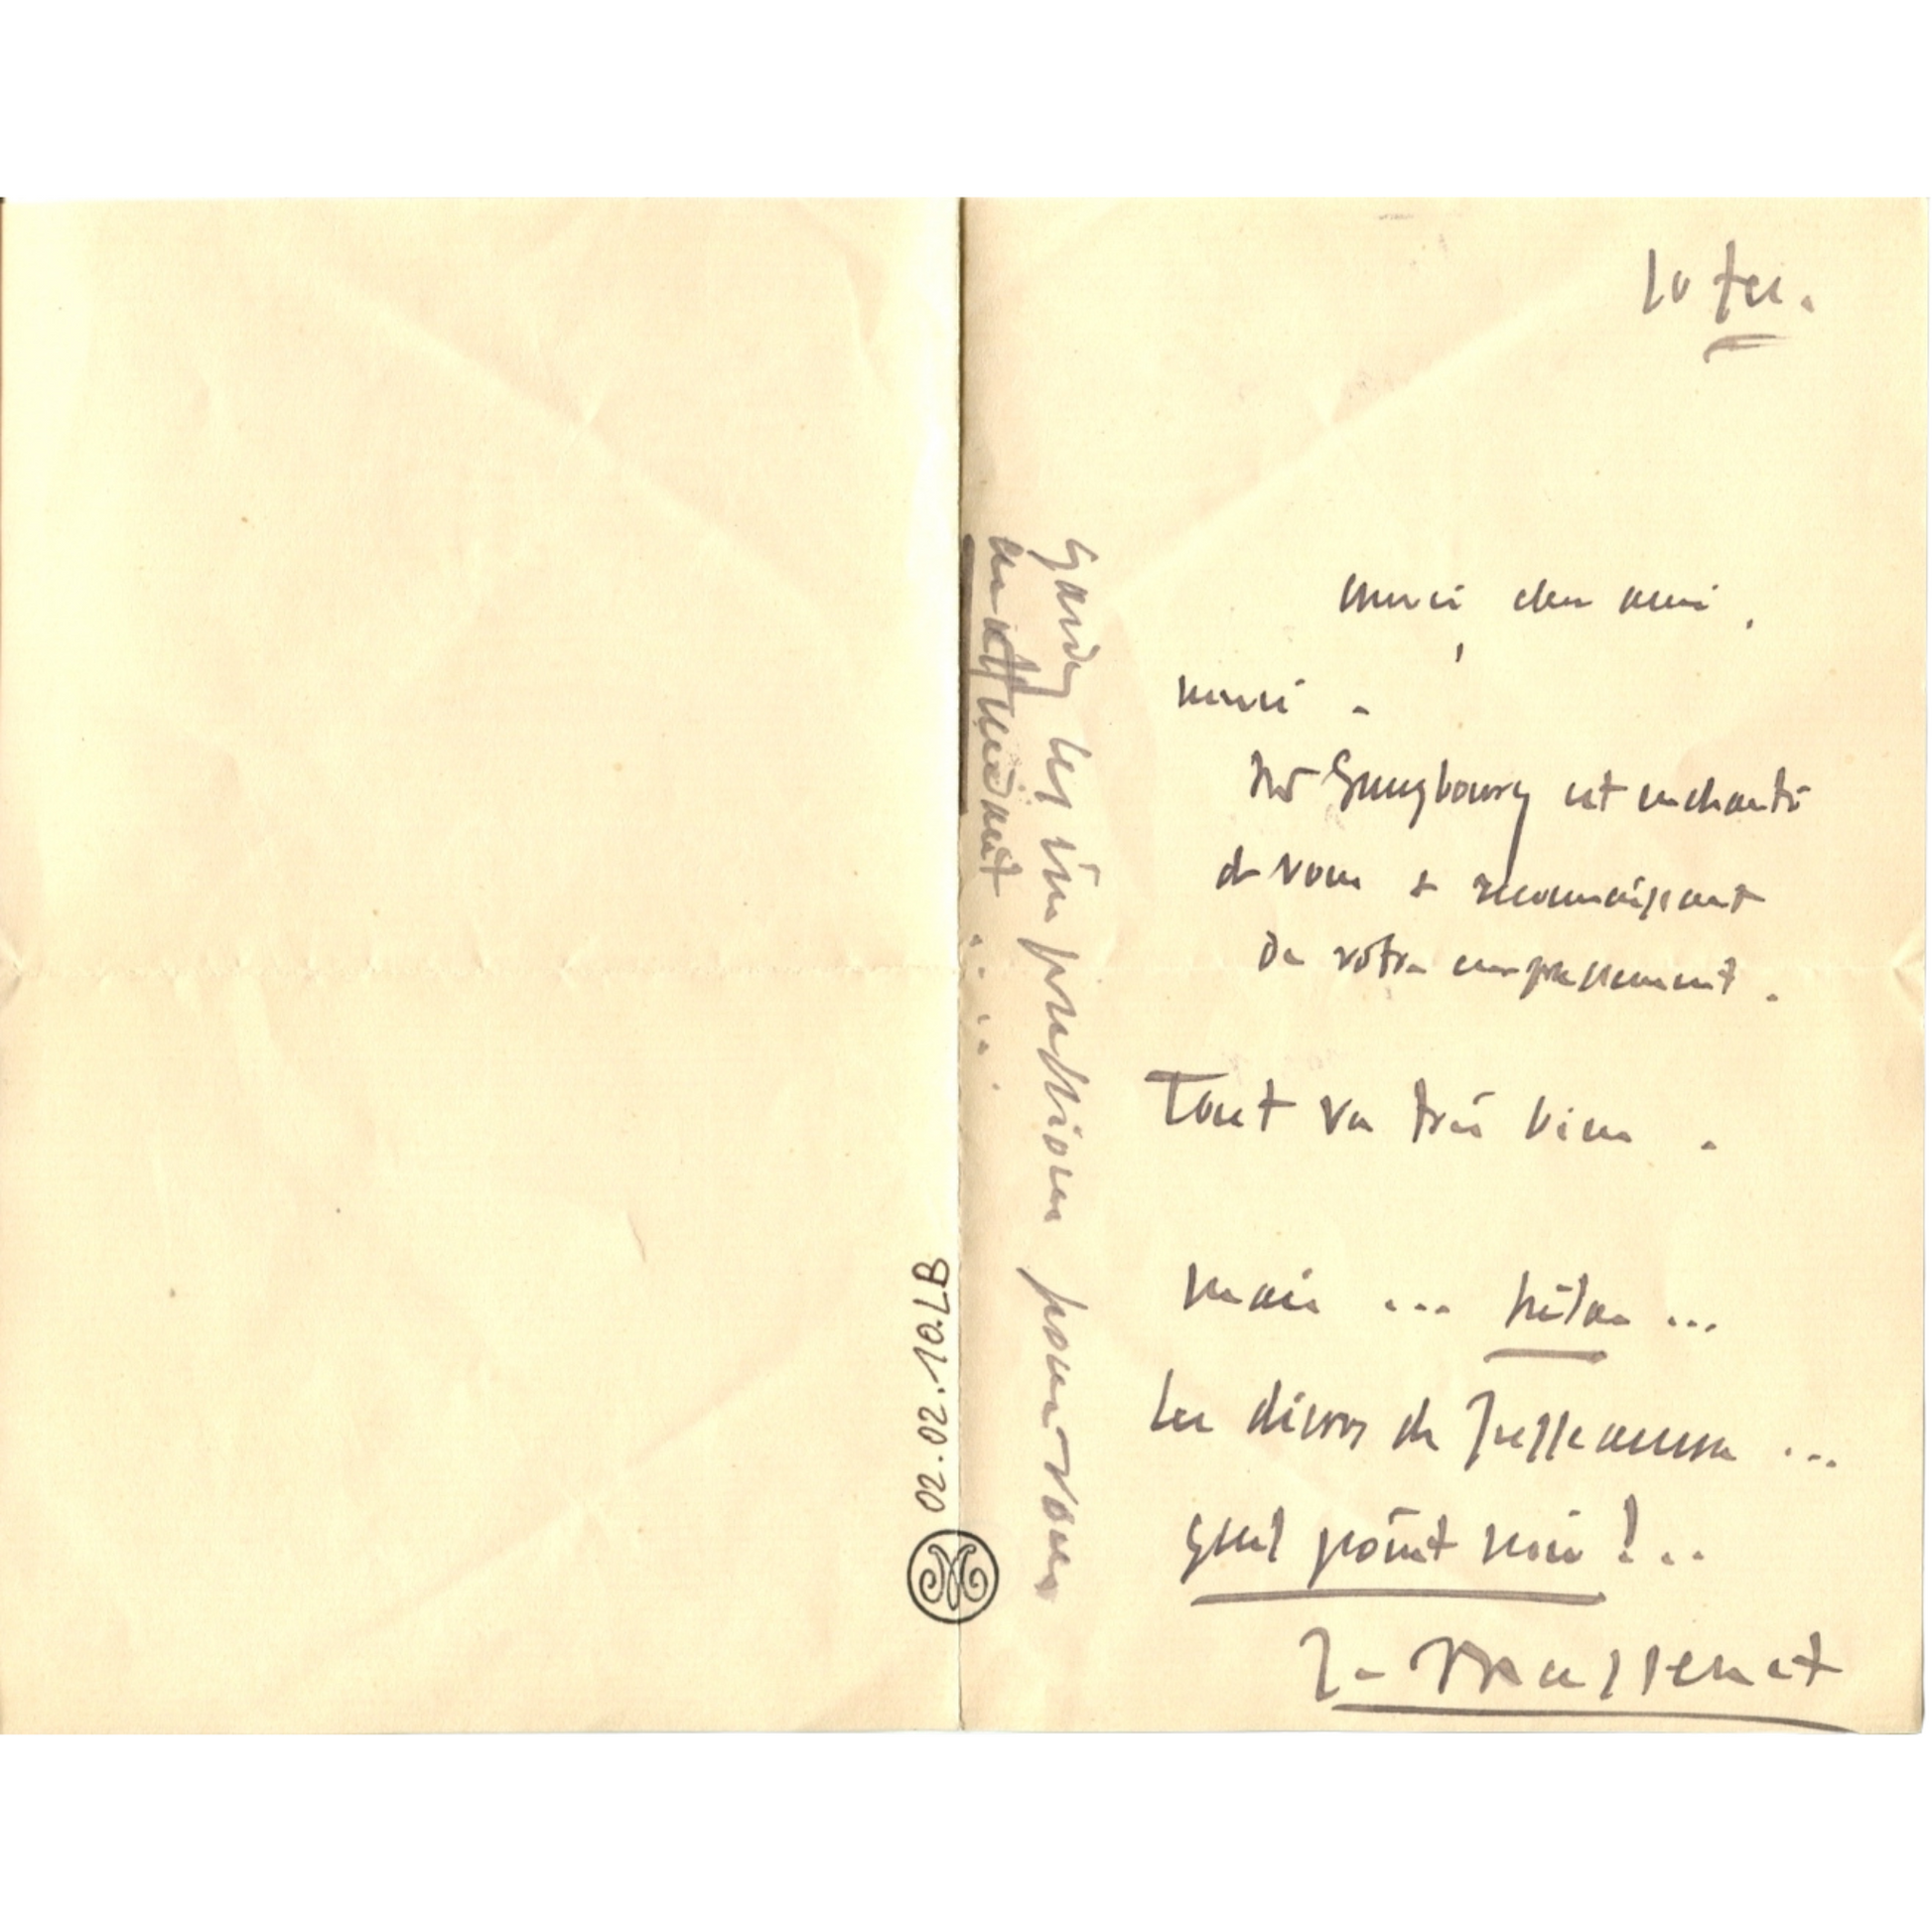 10 fev.
merci, cher ami,
merci.
Mr Gunsbourg est enchanté
de vous & reconnaissant
de votre empressement.
Tout va très bien.
mais ... hélas ...
les décors de Jusseaume ...
quel point noir !..
J. Massenet
gardez les impressions pour vous
en attendant .....
02.02.10.LB